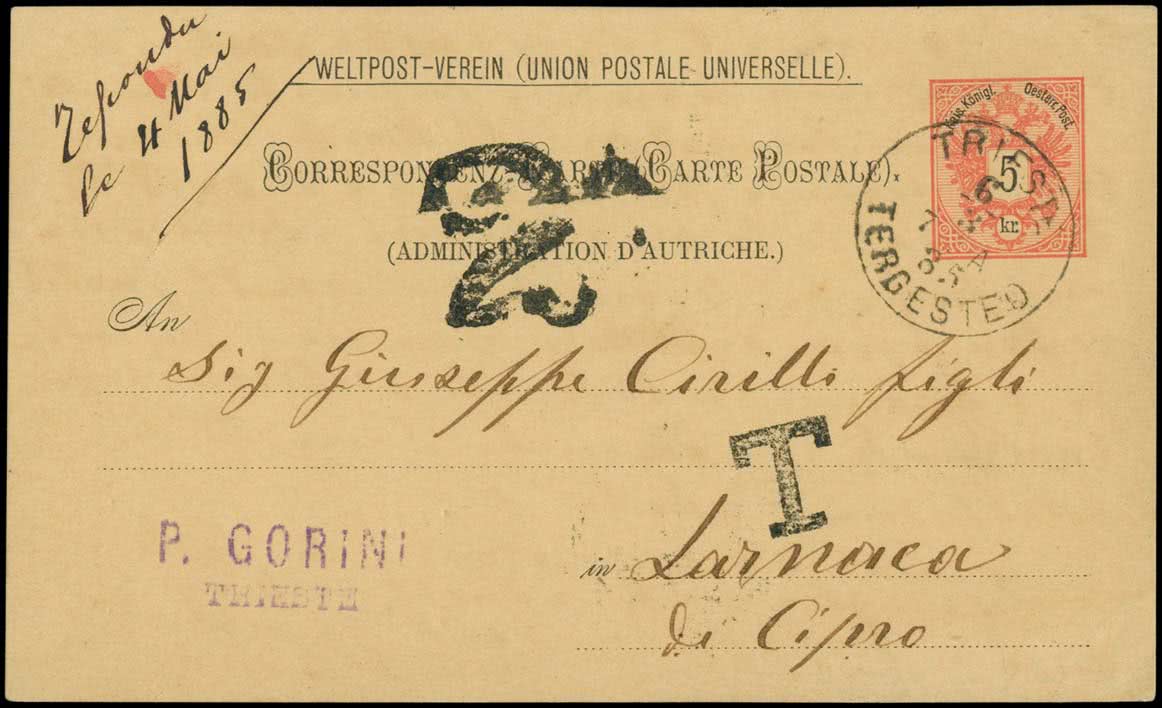 Repondu
le 4 Mai
1885
WELTPOST-VEREIN (UNION POSTALE UNIVERSELLE).
Kais. Königl. Oesterr. Post.
5
kr.
CORRESPONDENZ-KARTE (CARTE POSTALE).
(ADMINISTRATION D'AUTRICHE).
TRIEST
TERGESTEO
An
Sig Giuseppe Cirilli figli
T
P. GORINI
TRIESTE
in Larnaca
di Cipro